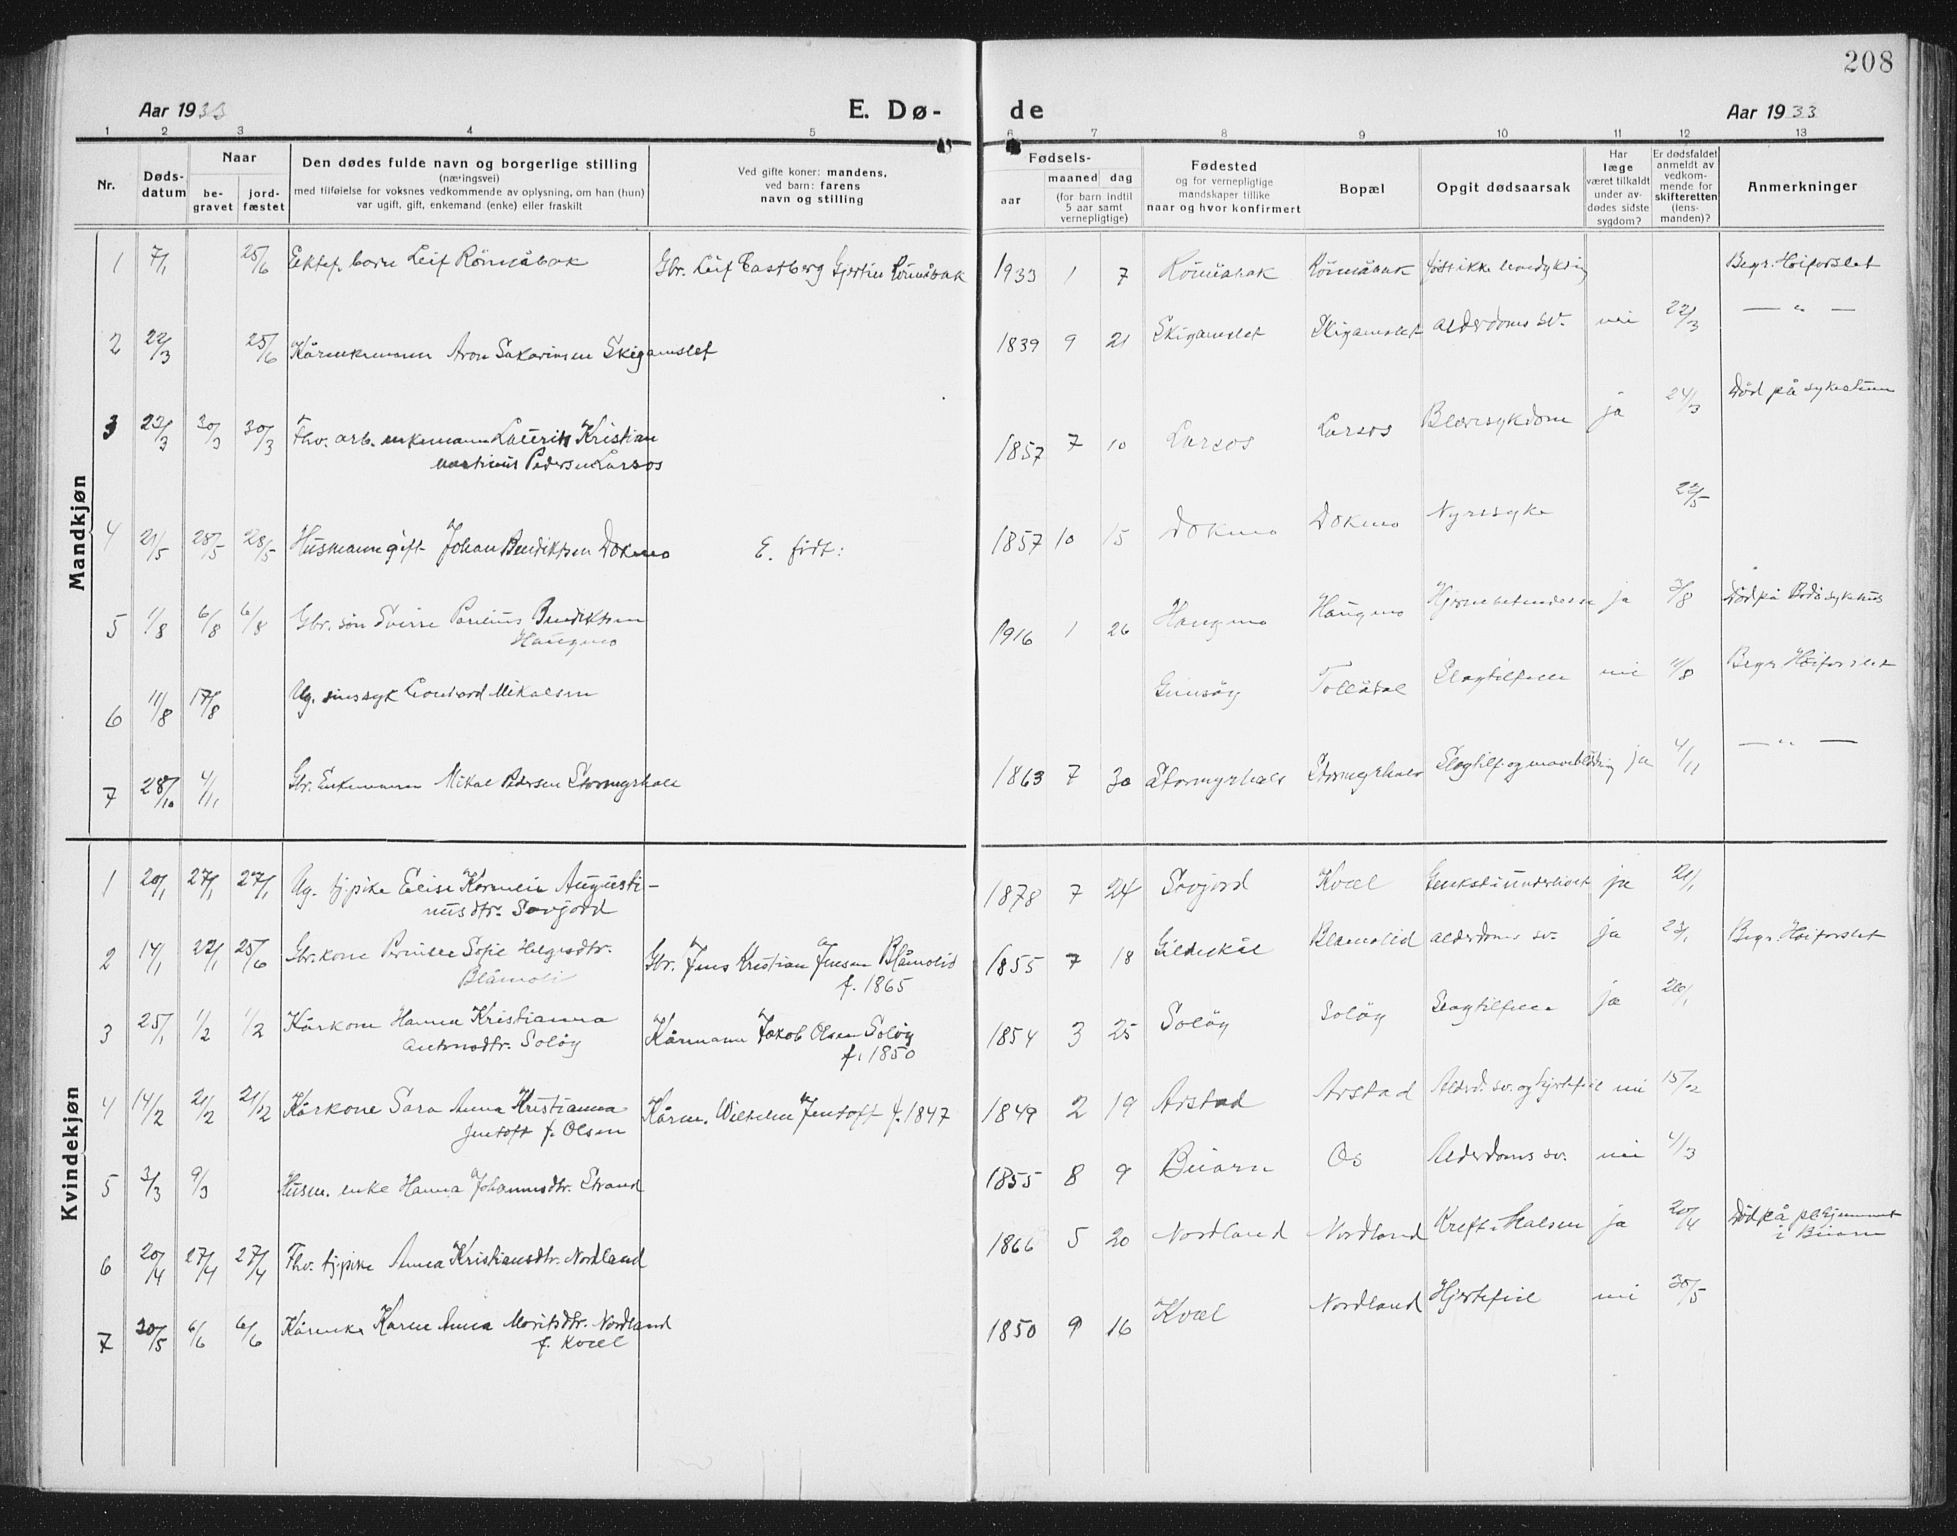 208
Aar 1933 E. Dø- de Aar 1933
1 2 3 4 5 6 7 8 9 10 11 12 13
Nr. Døds-datum Naar be-gravet jord-fæstet Den dødes fulde navn og borgerlige stilling (næringsvei) med tilføielse for voksnes vedkommende av oplysning, om han (hun) var ugift, gift, enkemand (enke) eller fraskilt Ved gifte koner: mandens, ved barn: farens navn og stilling Fødsels- aar maaned dag (for barn indtil 5 aar samt vernepligtige) Fødested og for vernepligtige mandskaper tillike naar og hvor konfirmert Bopæl Opgit dødsaarsak Har læge været tilkaldt under av-dødes sidste sygdom? Er dødsfaldet anmeldt av vedkom-mende for skifteretten (lens-manden)? Anmerkninger
Mandkjøn
1 7/1 25/6 Ektef. barn Leif Rönnåbak Gbr. Leif Eastberg Gjertin Rönnåbak 1933 1 7 Rönnåbak Rönnåbak født ikke levedyktig Begr. Høiforslet
2 22/3 25/6 Kårenkemann Aron Sakariassen Skigamslet 1839 9 21 Skigamslet Skigamslet Alderdoms sv. nei 22/3 — " —
3 22/3 30/3 30/3 Fhv. arb. enkemann Laurits Kristian 1857 7 10 Larsos Larsos Blæresykdom ja 24/3 Død på sykestuen
Martinus Pedersen Larsos
4 21/5 28/5 28/5 Husmann gift Johan Bendiktsen Dokmo E. født: 1857 10 15 Dokmo Dokmo Nyresyke 22/5
5 1/8 6/8 6/8 Gbr. søn Sverre Parelius Bendiktsen 1916 1 26 Haugmo Haugmo Hjernebetendelse ja 3/8 Død på Bodø sykehus
Haugmo
6 11/8 17/8 Ug. sinssyk Leonhard Mikalsen Gimsøy Tollådal Slagtilfelle nei 11/8 Begr. Høiforslet
7 28/10 4/11 Gbr. Enkemann Mikal Pedersen Stormyrhals 1863 7 30 Stormyrhals Stormyrhals Slagtilf. og maveblødning ja 4/11 — " —
Kvindekjøn
1 20/1 27/1 27/1 Ug. tj.pike Elise Kornelie Augusti- 1878 7 24 Sovjord Kvæl i underlivet ja 21/1
nusdtr. Sovjord
2 14/1 22/1 25/6 Gbr.kone Pernille Sofie Helgesdtr. Gbr. Jens Kristian Jensen Blåmolid 1855 7 18 Gildeskål Blåmolid Alderdoms sv. ja 23/1 Begr. Høiforslet
Blåmoli f. 1865
3 25/1 1/2 1/2 Kårkone Hanna Kristianna Kårmann Jakob Olsen Soløy 1854 3 25 Soløy Soløy Slagtilfelle ja 26/1
Antonsdtr. Soløy f. 1850
4 14/2 21/2 21/2 Kårkone Sara Anna Kristianna Kårm. Wilhelm Jentoft f. 1847 1849 2 19 Arstad Arstad Alderd. sv. og hjertefeil nei 15/2
Jentoft f. Olsen
5 3/3 9/3 Husm. enke Hanna Johannesdtr. Strand 1855 8 9 Beiarn Os Alderdoms sv. nei 4/3
6 20/4 27/4 27/4 Fhv. tj.pike Anna Kristiansdtr. Nordland 1866 5 20 Nordland Nordland Kreft i Halsen ja 20/4 Død på pl.hjemmet
i Beiarn
7 30/5 6/6 6/6 Kårenke Karen Anna Moritsdtr. Nordland 1850 9 16 Kvæl Nordland Hjertefeil nei 30/5
f. Kvæl